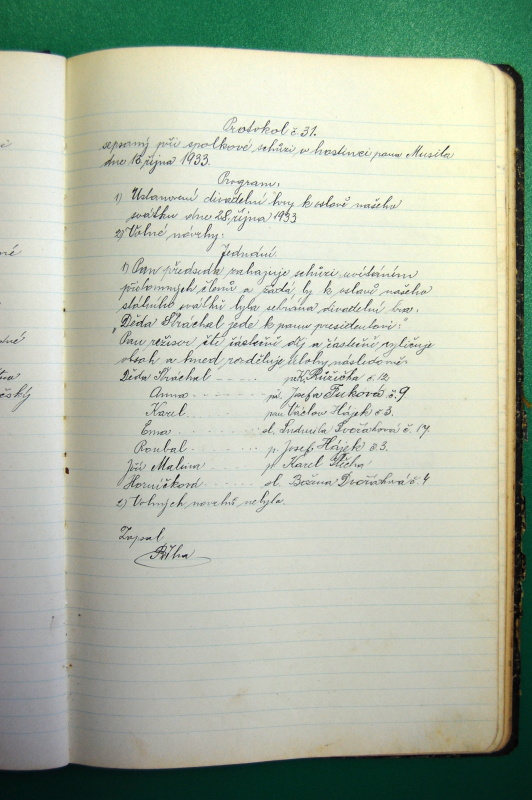 Protokol č 31.
sepsaný při spolkové schůzi v hostinci pana Musila
dne 18, října 1933.
Program:
1) Ustanovení divadelní hry k oslavě našeho
svátku dne 28, října 1933
2) Volné návrhy:
Jednání.
1) Pan předseda zahajuje schůzi uvítáním
přítomných členů a žádá by k oslavě našeho
státního svátku byla sehrána divadelní hra.
„Děda Strachal jede k panu presidentovi“
Pan režisor čte částečně děj a částečně vyličuje
obsah a hned rozděluje úlohy následovně:
Děda Strachal - - - - - p. K. Růžička č. 12
Anna - - - - pí. Josefa Tuková č. 9
Karel - - - - pan Václav Hájek č 3.
Ema - - - - sl. Ludmila Dvořáková č. 17
Roubal - - - - p. Josef Hájek č 3.
Jiří Malina - - - - p. Karel Plícha
Horníčková - - - - sl. Božena Dvořáková č. 4
2) Volných návrhů nebylo.
Zapsal